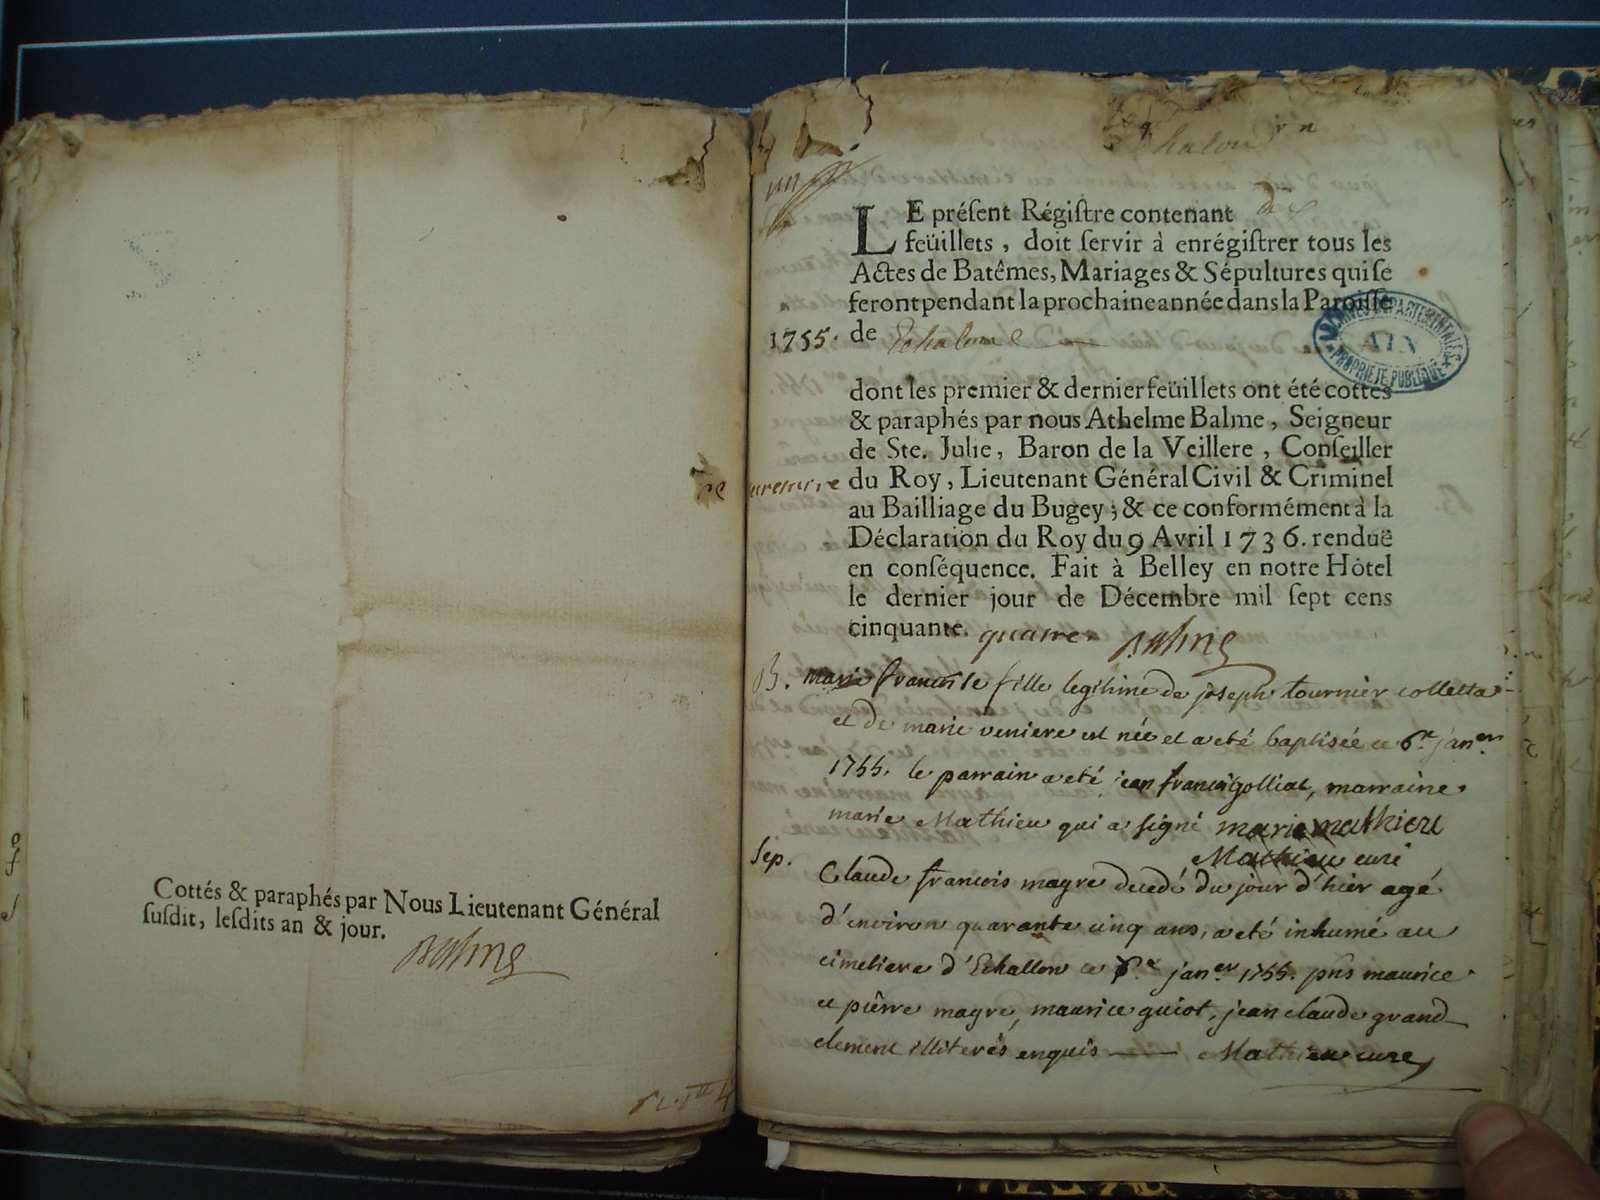 Cottés & paraphés par Nous Lieutenant Général
susdit, lesdits an & jour.
Balme
un
LE présent Régistre contenant dix
feüillets, doit servir à enrégistrer tous les
Actes de Batêmes, Mariages & Sépultures qui se
feront pendant la prochaine année dans la Paroisse
1755. de Echalone
ARCHIVES DÉPARTEMENTALES
AIN
PROPRIÉTÉ PUBLIQUE
dont les premier & dernier feüillets ont été cottés
& paraphés par nous Athelme Balme, Seigneur
de Ste. Julie, Baron de la Veillere, Conseiller
du Roy, Lieutenant Général Civil & Criminel
au Bailliage du Bugey; & ce conformément à la
Déclaration du Roy du 9 Avril 1736. renduë
en conséquence. Fait à Belley en notre Hôtel
le dernier jour de Décembre mil sept cens
cinquante. quatre. Balme
B. marie francoise fille legitime de joseph tournier colletta
et de marie veniere est née et a eté baptisée ce 6.e jan.er
1755. le parrain a eté jean francois golliat, marraine
marie Mathieu qui a signé marie mathieu
Mathieu curé
Sep.
Claude francois mayre decedé du jour d'hier agé
d'environ quarante cinq ans, a eté inhumé au
cimetiere d'Echallon ce jan.er 1755. pñs maurice
et pierre mayre, maurice guiot, jean claude grand
clement illiterés enquis Mathieu curé